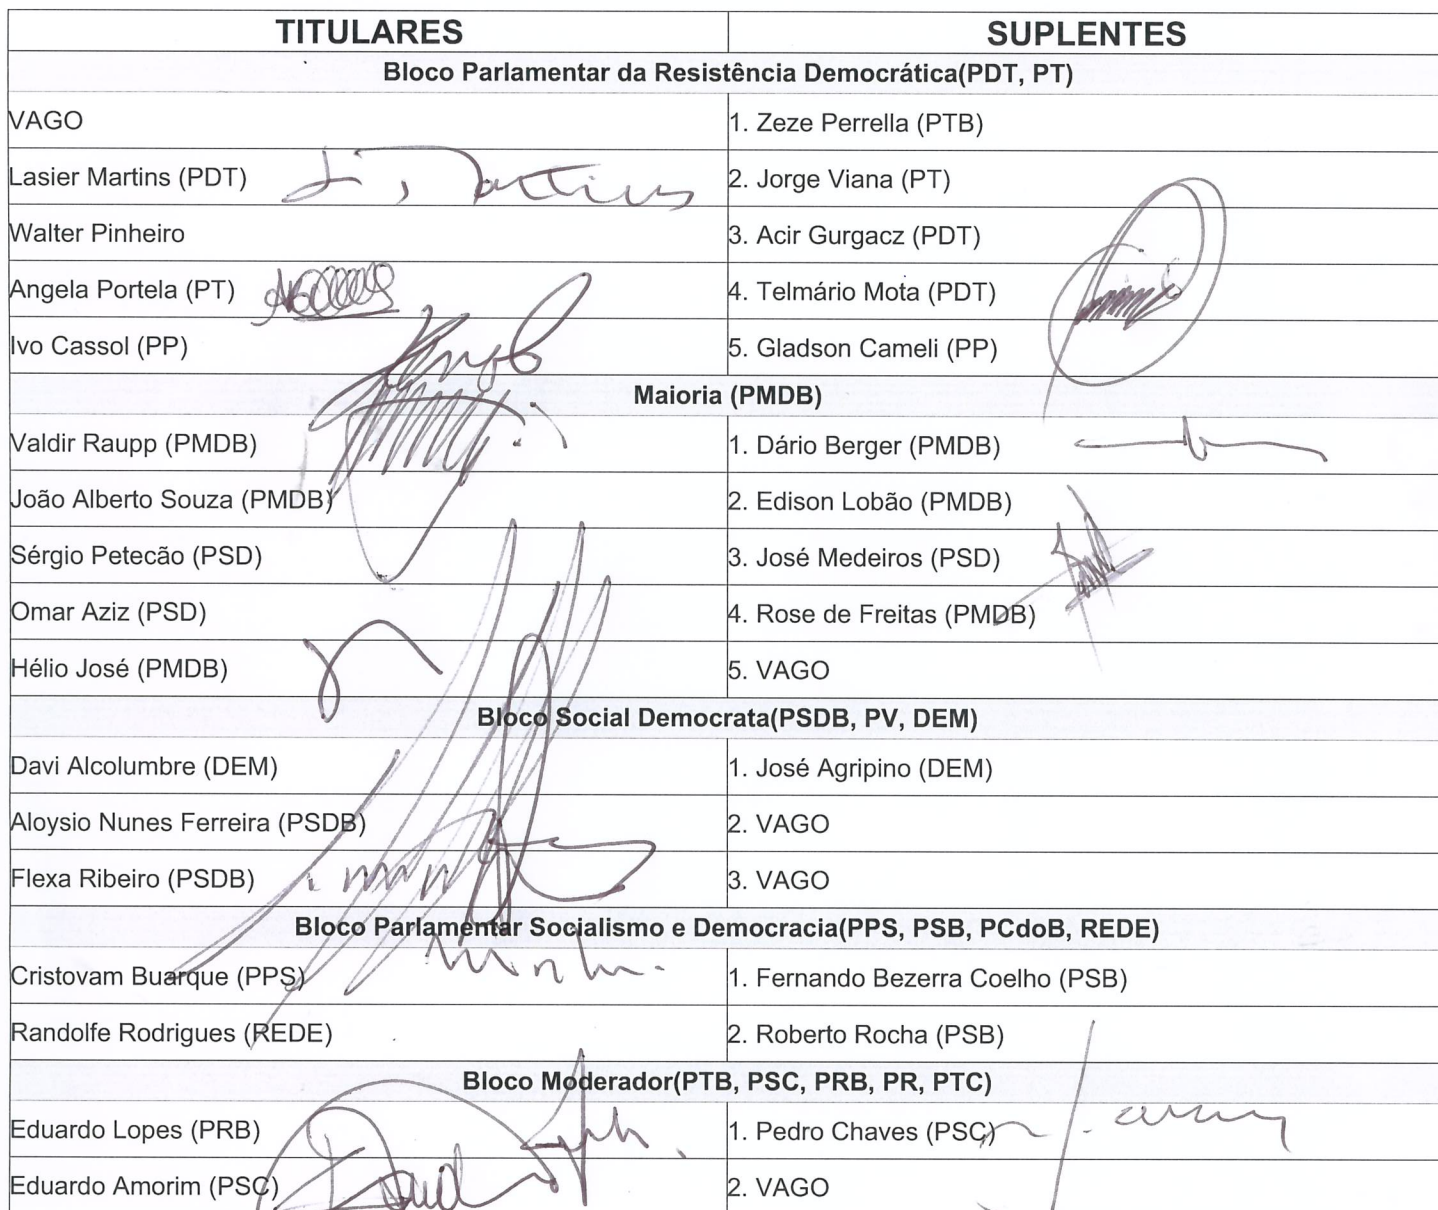 TITULARES SUPLENTES
Bloco Parlamentar da Resistência Democrática(PDT, PT)
VAGO 1. Zeze Perrella (PTB)
Lasier Martins (PDT) L. Martins 2. Jorge Viana (PT)
Walter Pinheiro 3. Acir Gurgacz (PDT)
Angela Portela (PT) 4. Telmário Mota (PDT)
Ivo Cassol (PP) 5. Gladson Cameli (PP)
Maioria (PMDB)
Valdir Raupp (PMDB) 1. Dário Berger (PMDB)
João Alberto Souza (PMDB) 2. Edison Lobão (PMDB)
Sérgio Petecão (PSD) 3. José Medeiros (PSD)
Omar Aziz (PSD) 4. Rose de Freitas (PMDB)
Hélio José (PMDB) 5. VAGO
Bloco Social Democrata(PSDB, PV, DEM)
Davi Alcolumbre (DEM) 1. José Agripino (DEM)
Aloysio Nunes Ferreira (PSDB) 2. VAGO
Flexa Ribeiro (PSDB) 3. VAGO
Bloco Parlamentar Socialismo e Democracia(PPS, PSB, PCdoB, REDE)
Cristovam Buarque (PPS) 1. Fernando Bezerra Coelho (PSB)
Randolfe Rodrigues (REDE) 2. Roberto Rocha (PSB)
Bloco Moderador(PTB, PSC, PRB, PR, PTC)
Eduardo Lopes (PRB) 1. Pedro Chaves (PSC)
Eduardo Amorim (PSC) 2. VAGO